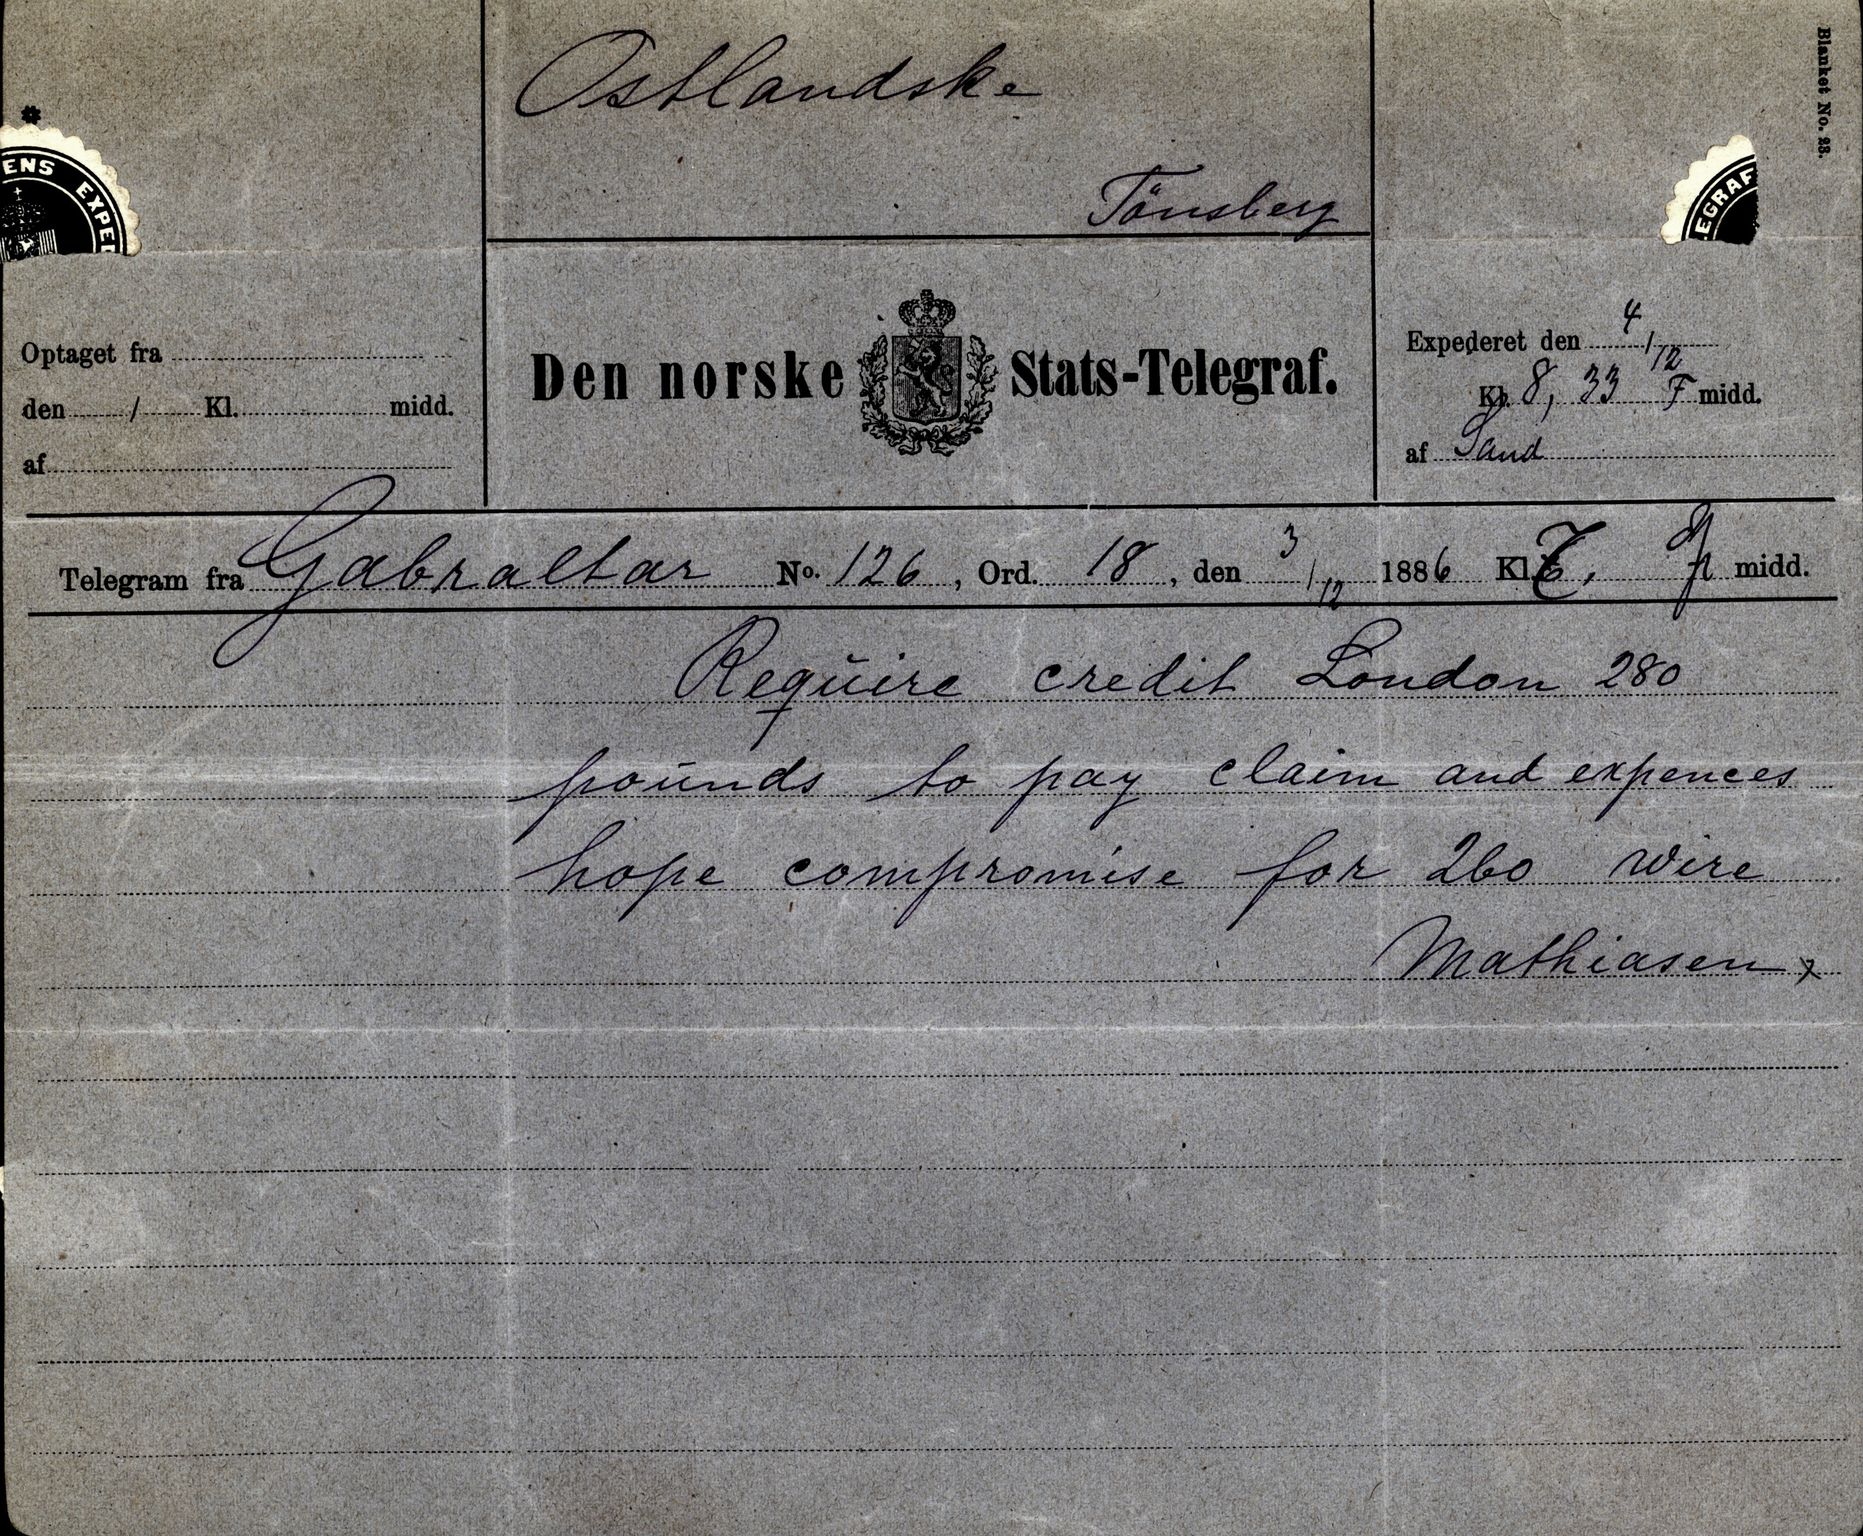 Ostlandske
Tönsberg
Blanket No. 23.
ENS EXPED
LEGRAF
Optaget fra
den / Kl. midd.
af
Den norske Stats-Telegraf.
Expederet den 4/12
Kl. 8,33 F midd.
af Sand
Telegram fra Gabraltar No. 126, Ord. 18, den 3/12 1886 Kl. midd.
Require credit London 280
pounds to pay claim and expences
hope compromise for 260 wire
Mathiasen